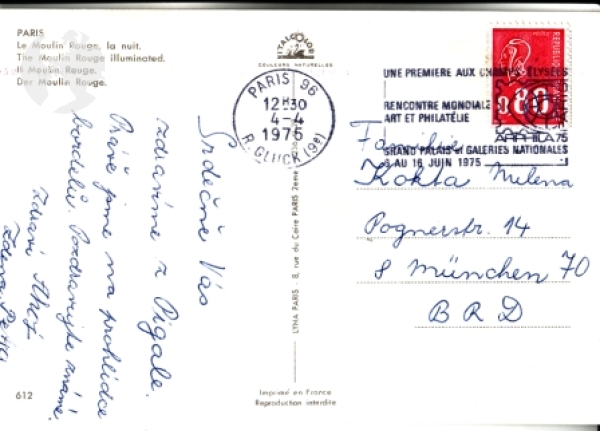 PARIS
Le Moulin Rouge, la nuit.
The Moulin Rouge illuminated.
Il Moulin Rouge.
Der Moulin Rouge.
ITALCOLOR
COULEURS NATURELLES
PARIS 96
12H30
4-4
1975
R. GLUCK (9e)
UNE PREMIERE AUX CHAMPS-ELYSEES
RENCONTRE MONDIALE
ART ET PHILATÉLIE
GRAND PALAIS et GALERIES NATIONALES
6 AU 16 JUIN 1975
ARPHILA 75
0,80
Srdečně Vás
zdravíme z Pigale.
Právě jsme na prohlídce
bordelů. Pozdravujte známé.
Zdraví Ahoj
LYNA PARIS - 8, rue du Caire PARIS 2eme
Familie
Kokta Milena
Pognerstr. 14
8 München 70
BRD
612
Imprimé en France
Reproduction interdite